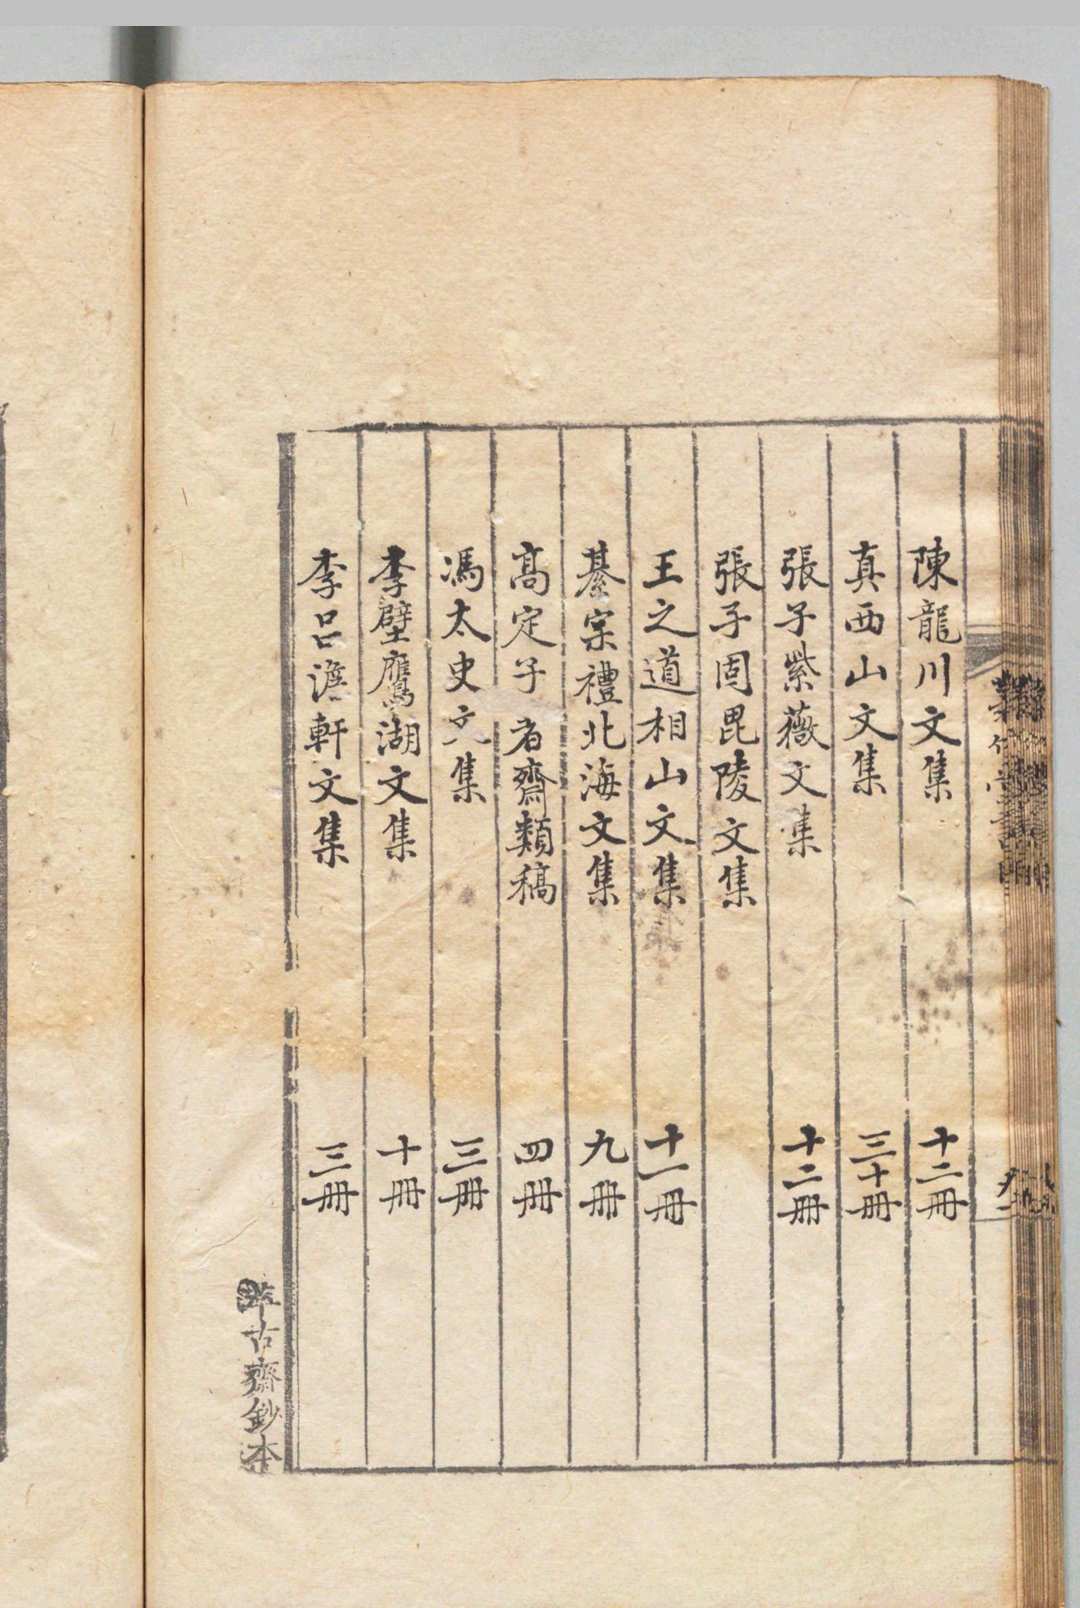 陳龍川文集 十二冊
真西山文集 三十冊
張子紫薇文集 十二冊
張子固毘陵文集
王之道相山文集 十一冊
綦宗禮北海文集 九冊
高定子耆齋類稿 四冊
馮太史文集 三冊
李壁鴈湖文集 十冊
李呂澹軒文集 三冊
古齋鈔本